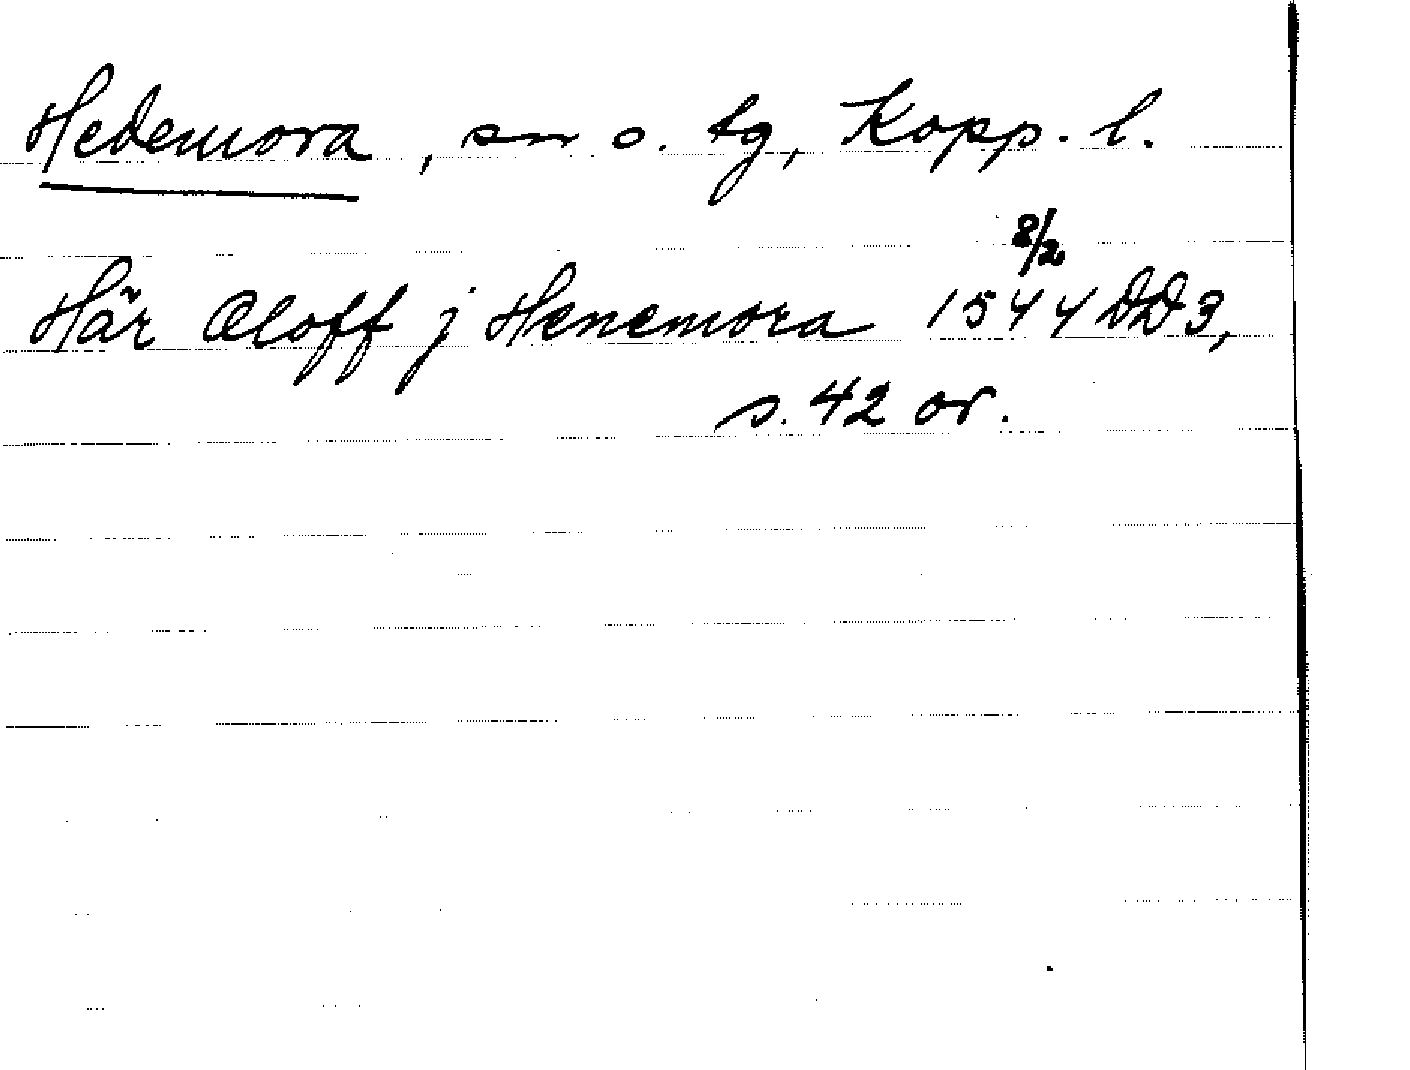 Hedemora, sn o. tg, Kopp. l.
Här Oloff j Henemora 1544 8/2 DD 3,
s. 42 or.